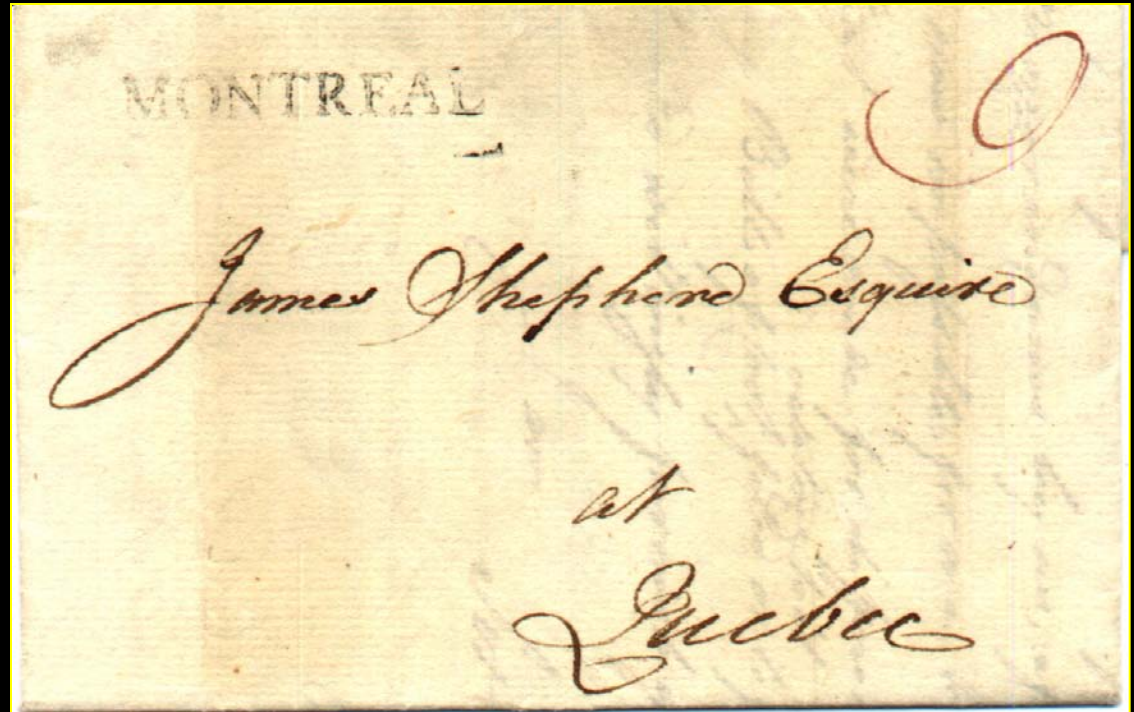 MONTREAL
James Shepherd Esquire
at
Quebec